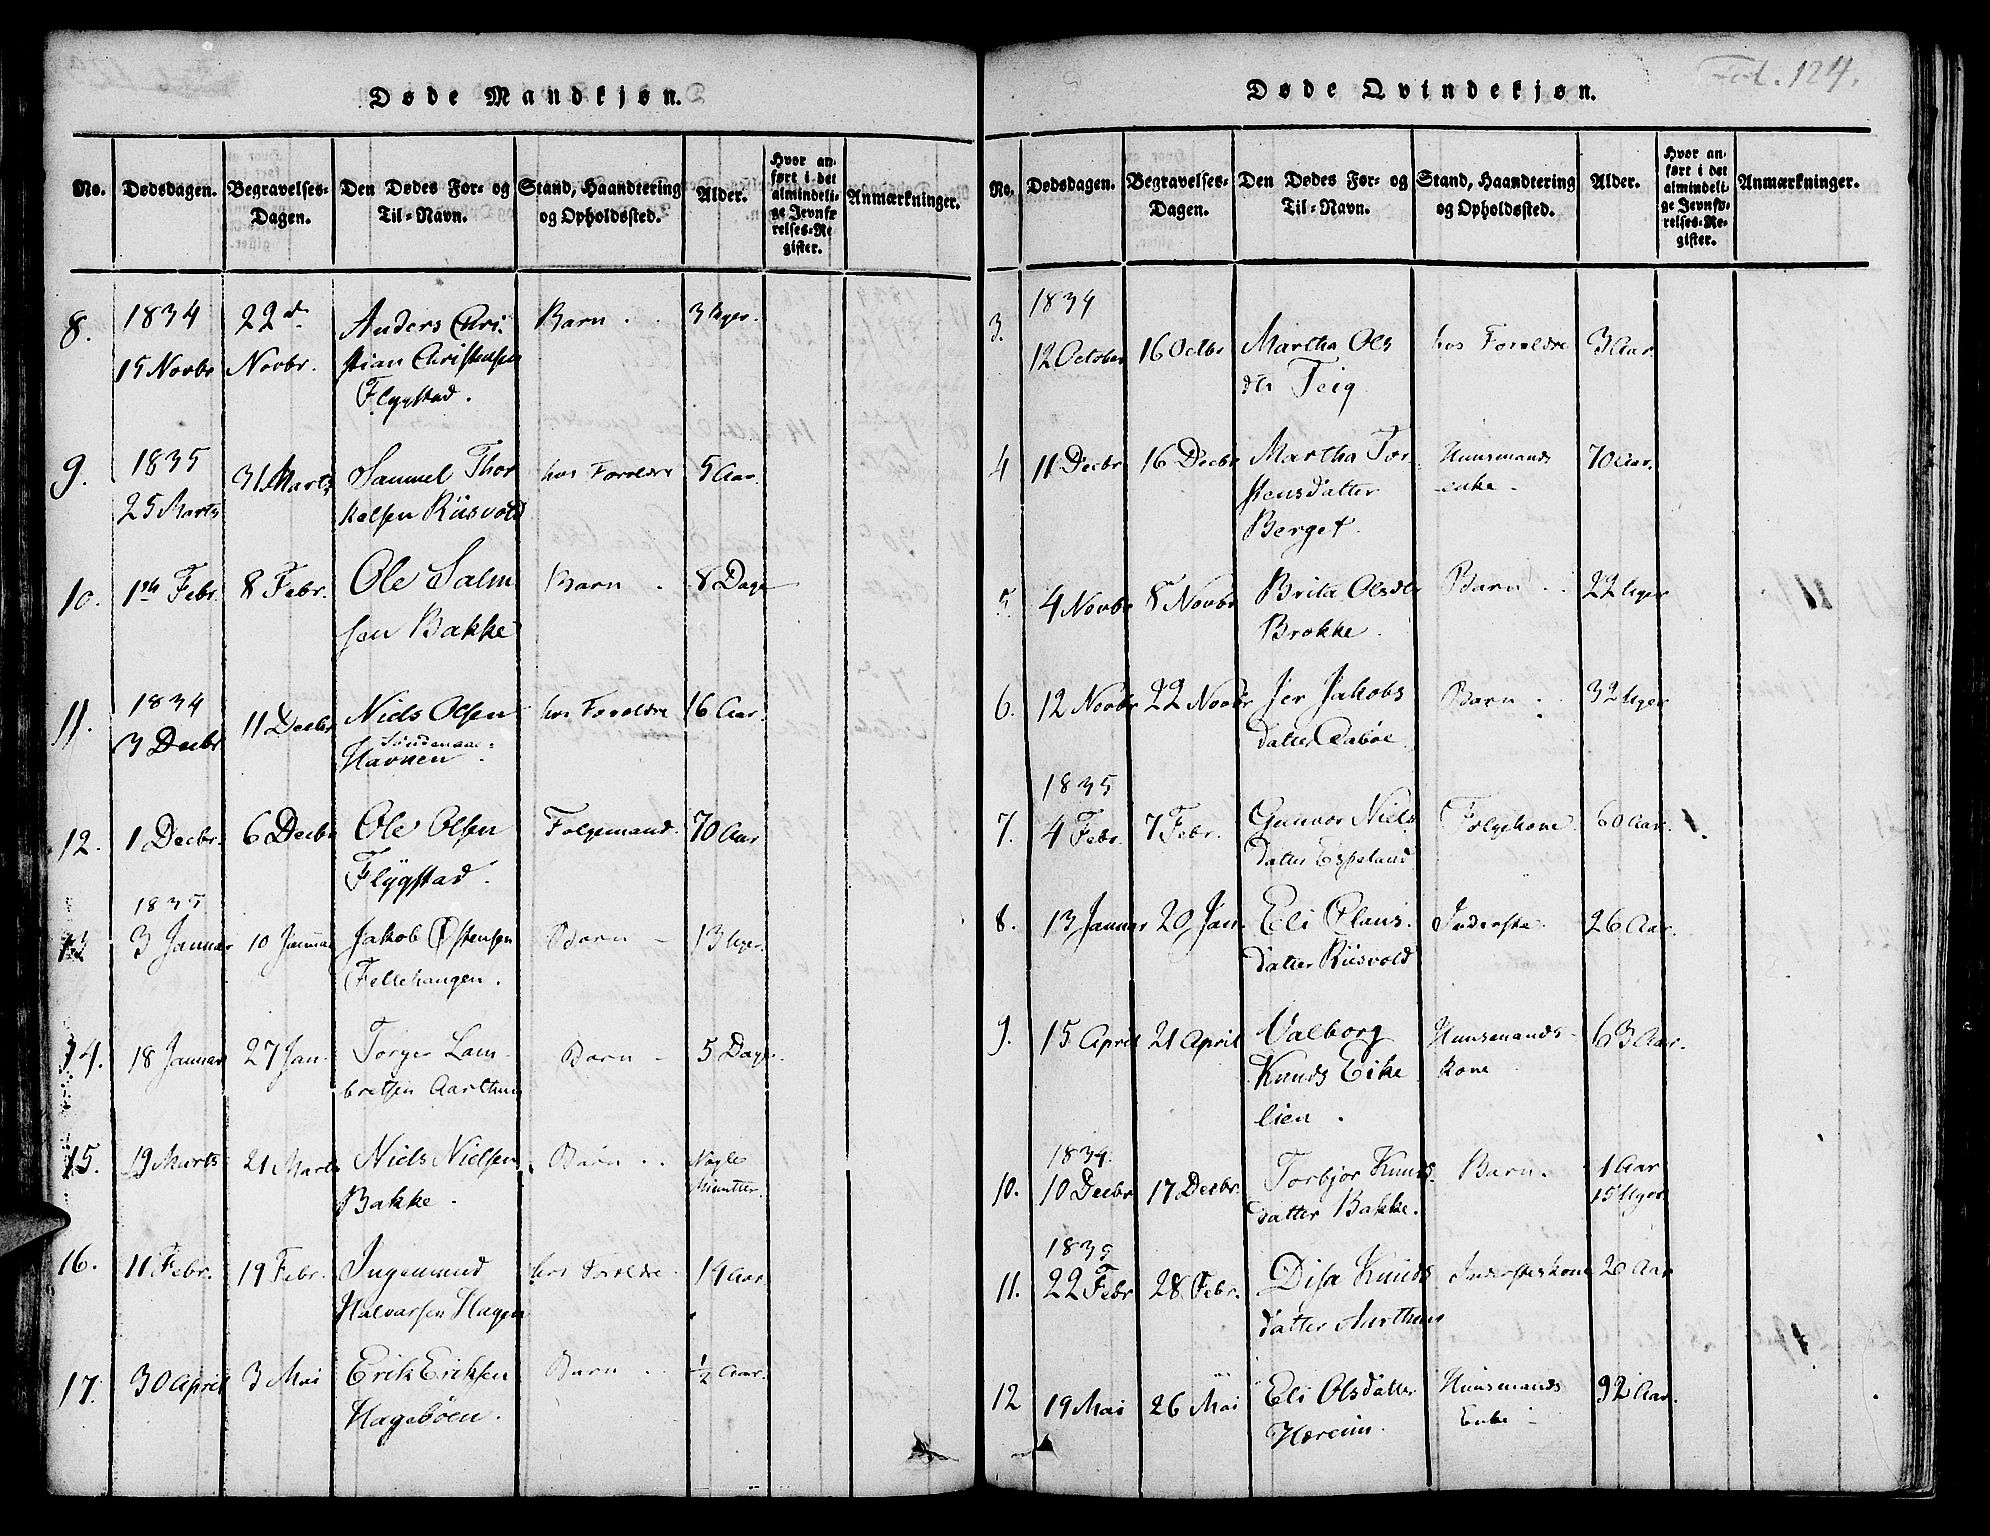 Døde Mandkjøn.
No. Dødsdagen. Begravelses-Dagen. Den Dødes For- og Til-Navn. Stand, Haandtering og Opholdssted. Alder. Hvor anført i det almindelige Jevnførelses-Register. Anmærkninger.
8. 1834 22d Anders Chri- Barn . . 3 Uger.
15 Novbr Novbr. stian Christensen
Flygstad.
9. 1835 31 Marts Samuel Thor hos Forældre 5 Aar.
25 Marts kelsen Riisvold
10. 1ste Febr. 8 Febr. Ole Salm Barn . 8 Dage
sen Bakke
11. 1834 11 Decbr Niels Olsen hos Forældre 16 Aar.
3 Decbr Søndenaae
Havnen.
12. 1 Decbr. 6 Decbr Ole Olsen Folgemand. 70 Aar
Flygstad.
1835
13 3 Januar 10 Januar Jakob Østensen Barn – 13 Uger.
Fellehaugen.
14. 18 Januar 27 Jan. Torger Lam- Barn – 5 Dage.
bretsen Aarthun
15. 19 Marts 21 Marts Niels Nielsen Barn . . Nogle
Bakke. Minutter.
16. 11 Febr. 19 Febr. Ingemund hos Forældre. 14 Aar
Halvarsen Hagen
17. 30 April 3 Mai Erik Eriksen Barn . . ½ Aar.
Hagebøen.
Fol. 124.
Døde Qvindekjøn.
No. Dødsdagen. Begravelses-Dagen. Den Dødes For- og Til-Navn. Stand, Haandtering og Opholdssted. Alder. Hvor anført i det almindelige Jevnførelses-Register. Anmærkninger.
1834
3. 12 October 16 Octbr Martha Ols hos Forældre 3 Aar
dtr Teig
4 11 Decbr 16 Decbr Martha Tor- Huusmands 70 Aar.
stensdatter enke –
Berget.
5. 4 Novbr 8 Novbr Brita Olsdtr Barn . . 22 Uger
Brokke.
6. 12 Novbr 22 Novbr Jer Jakobs Barn . 32 Uger
datter Aabøe.
1835
7. 4 Febr. 7 Febr. Gunnor Niels Folgekone. 60 Aar.
datter Espeland
8. 13 Januar 20 Jan. Eli Claus- Inderste. 26 Aar.
datter Riisvold
9. 15 April 21 April Valborg Huusmands- 63 Aar.
Knuds Eike kone
lien.
1834.
10. 10 Decbr 17 Decbr. Torbjor Knuds- Barn. 1 Aar
datter Bakke. 15 Uger
1835
11. 22 Febr 28 Febr. Disa Knuds Inderstekone 20 Aar
datter Aarthun
12 19 Mai 26 Mai Eli Olsdatter Huusmands 92 Aar.
Høreim Enke –